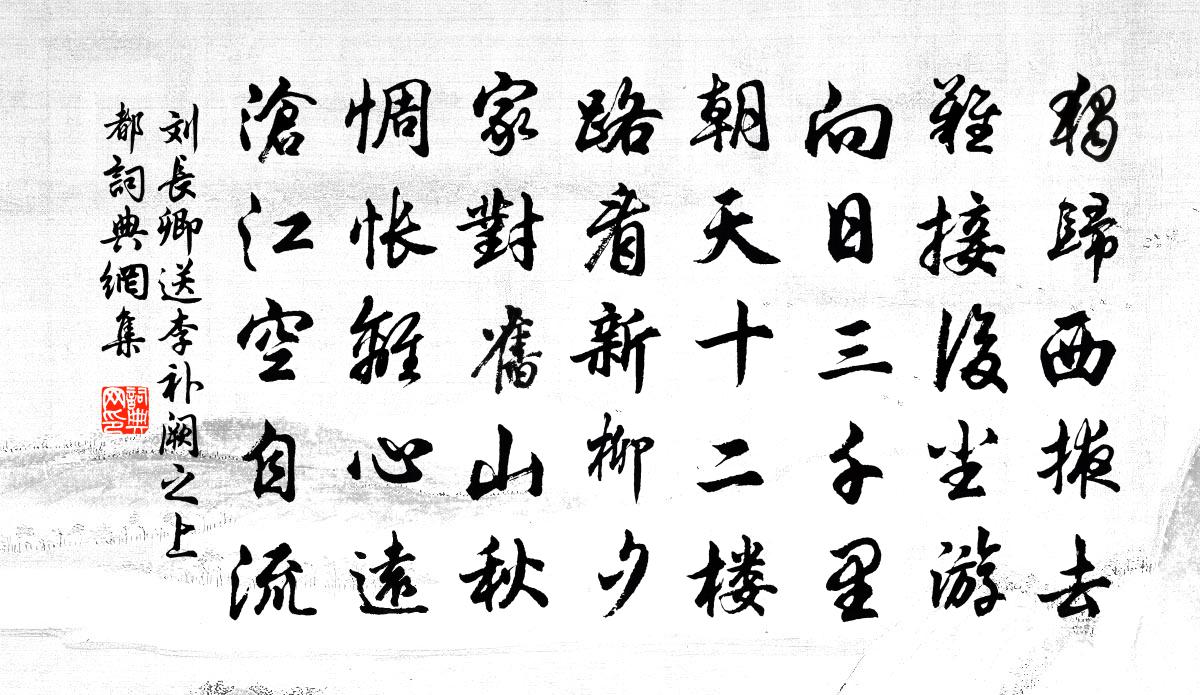 獨歸西掖去
難接後尘游
向日三千里
朝天十二楼
路看新柳夕
家對舊山秋
惆怅離心遠
滄江空自流
刘長卿送李补阙之上
都詞典網集
詞典网印